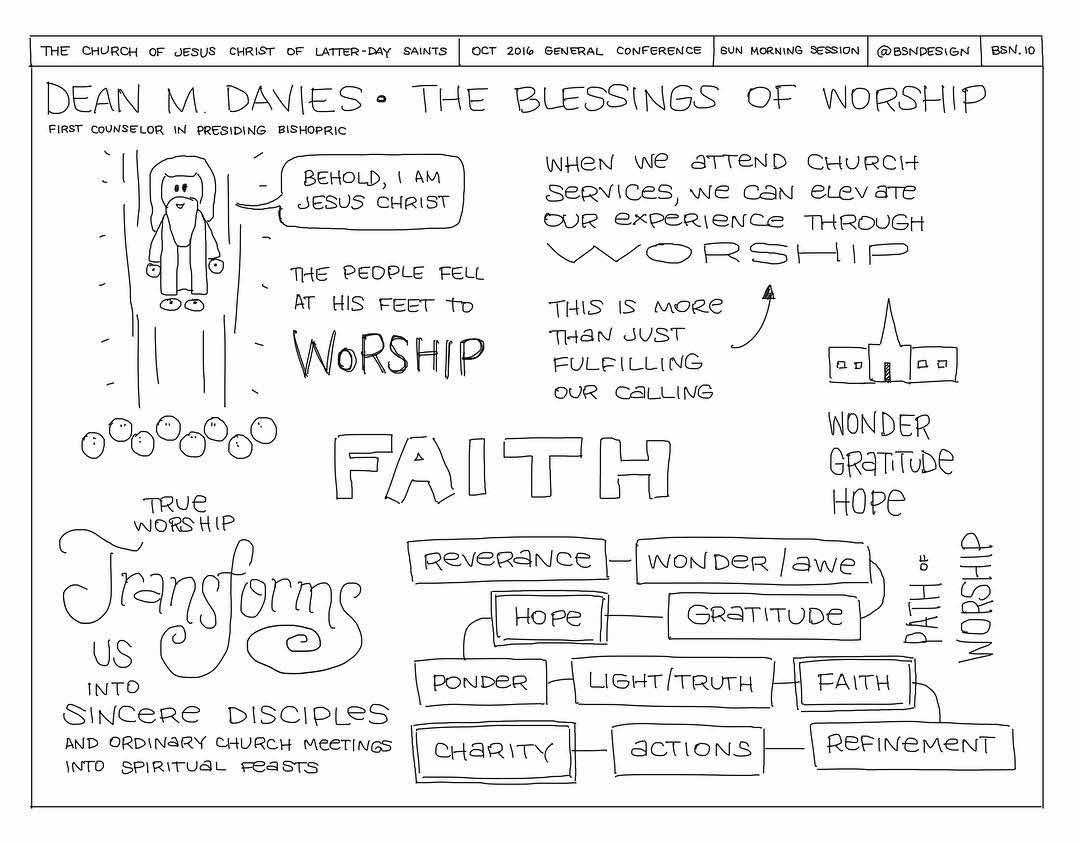 THE CHURCH OF JESUS CHRIST OF LATTER-DAY SAINTS
OCT 2016 GENERAL CONFERENCE
SUN MORNING SESSION
@BSNDESIGN
BSN.10
DEAN M. DAVIES • THE BLESSINGS OF WORSHIP
FIRST COUNSELOR IN PRESIDING BISHOPRIC
BEHOLD, I AM
JESUS CHRIST
THE PEOPLE FELL
AT HIS FEET TO
WORSHIP
WHEN WE ATTEND CHURCH
SERVICES, WE CAN ELEVATE
OUR EXPERIENCE THROUGH
WORSHIP
THIS IS MORE
THAN JUST
FULFILLING
OUR CALLING
WONDER
GRATITUDE
HOPE
FAITH
TRUE
WORSHIP
Transforms
US
INTO
SINCERE DISCIPLES
AND ORDINARY CHURCH MEETINGS
INTO SPIRITUAL FEASTS
REVERANCE
WONDER/AWE
HOPE
GRATITUDE
PONDER
LIGHT/TRUTH
FAITH
CHARITY
ACTIONS
REFINEMENT
PATH OF
WORSHIP